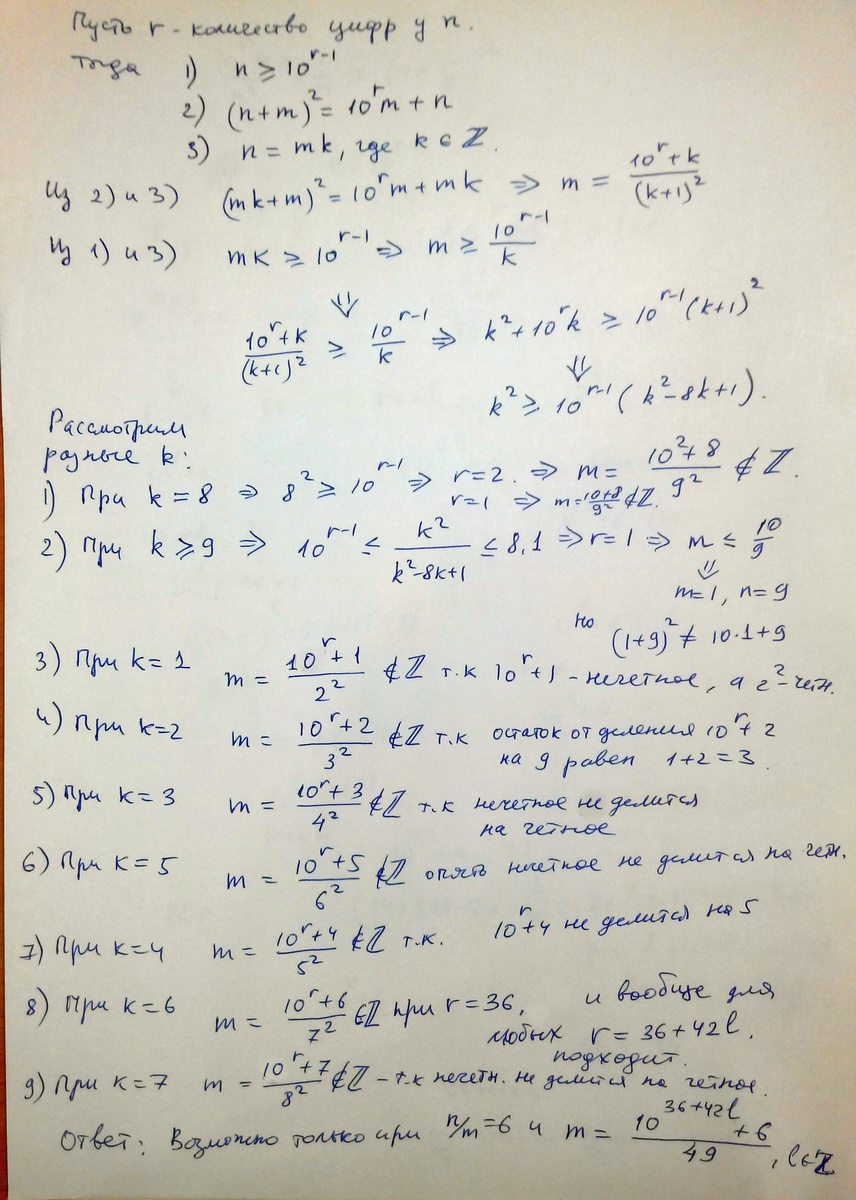 Пусть r - количество цифр у n.
Тогда 1) n ≥ 10^{r-1}
2) (n+m)^2 = 10^r m + n
3) n = mk, где k ∈ ℤ.
Из 2) и 3) (mk+m)^2 = 10^r m + mk ⇒ m = (10^r + k)/(k+1)^2
Из 1) и 3) mk ≥ 10^{r-1} ⇒ m ≥ 10^{r-1}/k
⇓
(10^r + k)/(k+1)^2 ≥ 10^{r-1}/k ⇒ k^2 + 10^r k ≥ 10^{r-1}(k+1)^2
⇓
k^2 ≥ 10^{r-1}(k^2 - 8k + 1).
Рассмотрим
разные k:
1) При k = 8 ⇒ 8^2 ≥ 10^{r-1} ⇒ r = 2. ⇒ m = (10^2 + 8)/9^2 ∉ ℤ.
r = 1 ⇒ m = (10+8)/9^2 ∉ ℤ.
2) При k ≥ 9 ⇒ 10^{r-1} ≤ k^2/(k^2 - 8k + 1) ≤ 8,1 ⇒ r = 1 ⇒ m ≤ 10/9
⇓
m = 1, n = 9
но (1+9)^2 ≠ 10·1 + 9
3) При k = 1 m = (10^r + 1)/2^2 ∉ ℤ т.к 10^r + 1 - нечетное, а 2^2 - четн.
4) При k = 2 m = (10^r + 2)/3^2 ∉ ℤ т.к остаток от деления 10^r + 2
на 9 равен 1+2 = 3.
5) При k = 3 m = (10^r + 3)/4^2 ∉ ℤ т.к нечетное не делится
на четное
6) При k = 5 m = (10^r + 5)/6^2 ∉ ℤ опять нечетное не делится на четн.
7) При k = 4 m = (10^r + 4)/5^2 ∉ ℤ т.к. 10^r + 4 не делится на 5
8) При k = 6 m = (10^r + 6)/7^2 ∈ ℤ при r = 36, и вообще для
любых r = 36 + 42l.
подходит.
9) При k = 7 m = (10^r + 7)/8^2 ∉ ℤ - т.к нечетн. не делится на четное.
Ответ: Возможно только при n/m = 6 и m = (10^{36+42l} + 6)/49, l ∈ ℤ